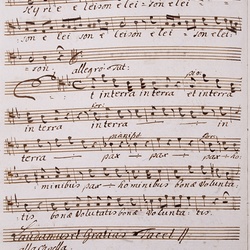 kyri=e e=leison e=lei=son e lei
son e lei=son e lei=son e lei=son e lei=
son. allegro Tut:
pia:
et in terra in terra et in terra
for:
in terra in terra
for: pianiss:
terra pax pax
for:
hominibus pax hominibus bonæ volunta
tis, bonæ Voluntatis bonæ volunta: tis.
Gratias Tacet
alla Capella